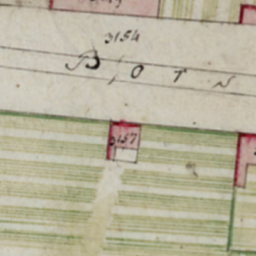 3154
B O T N
3157